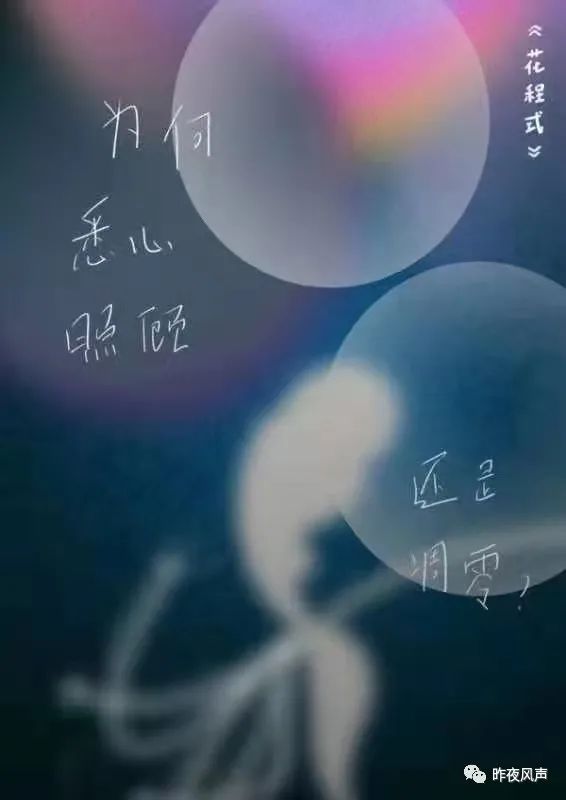 《花程式》
为何
悉心
照顾
还是
凋零？
昨夜风声